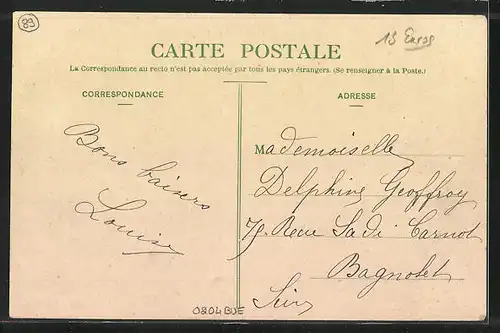 89
13 Euros
CARTE POSTALE
La Correspondance au recto n'est pas acceptée par tous les pays étrangers. (Se renseigner à la Poste.)
CORRESPONDANCE
ADRESSE
Bons baisers
Louise
Mademoiselle
Delphine Geoffroy
Rue Sadi Carnot
Bagnolet
Seine
0204BUE